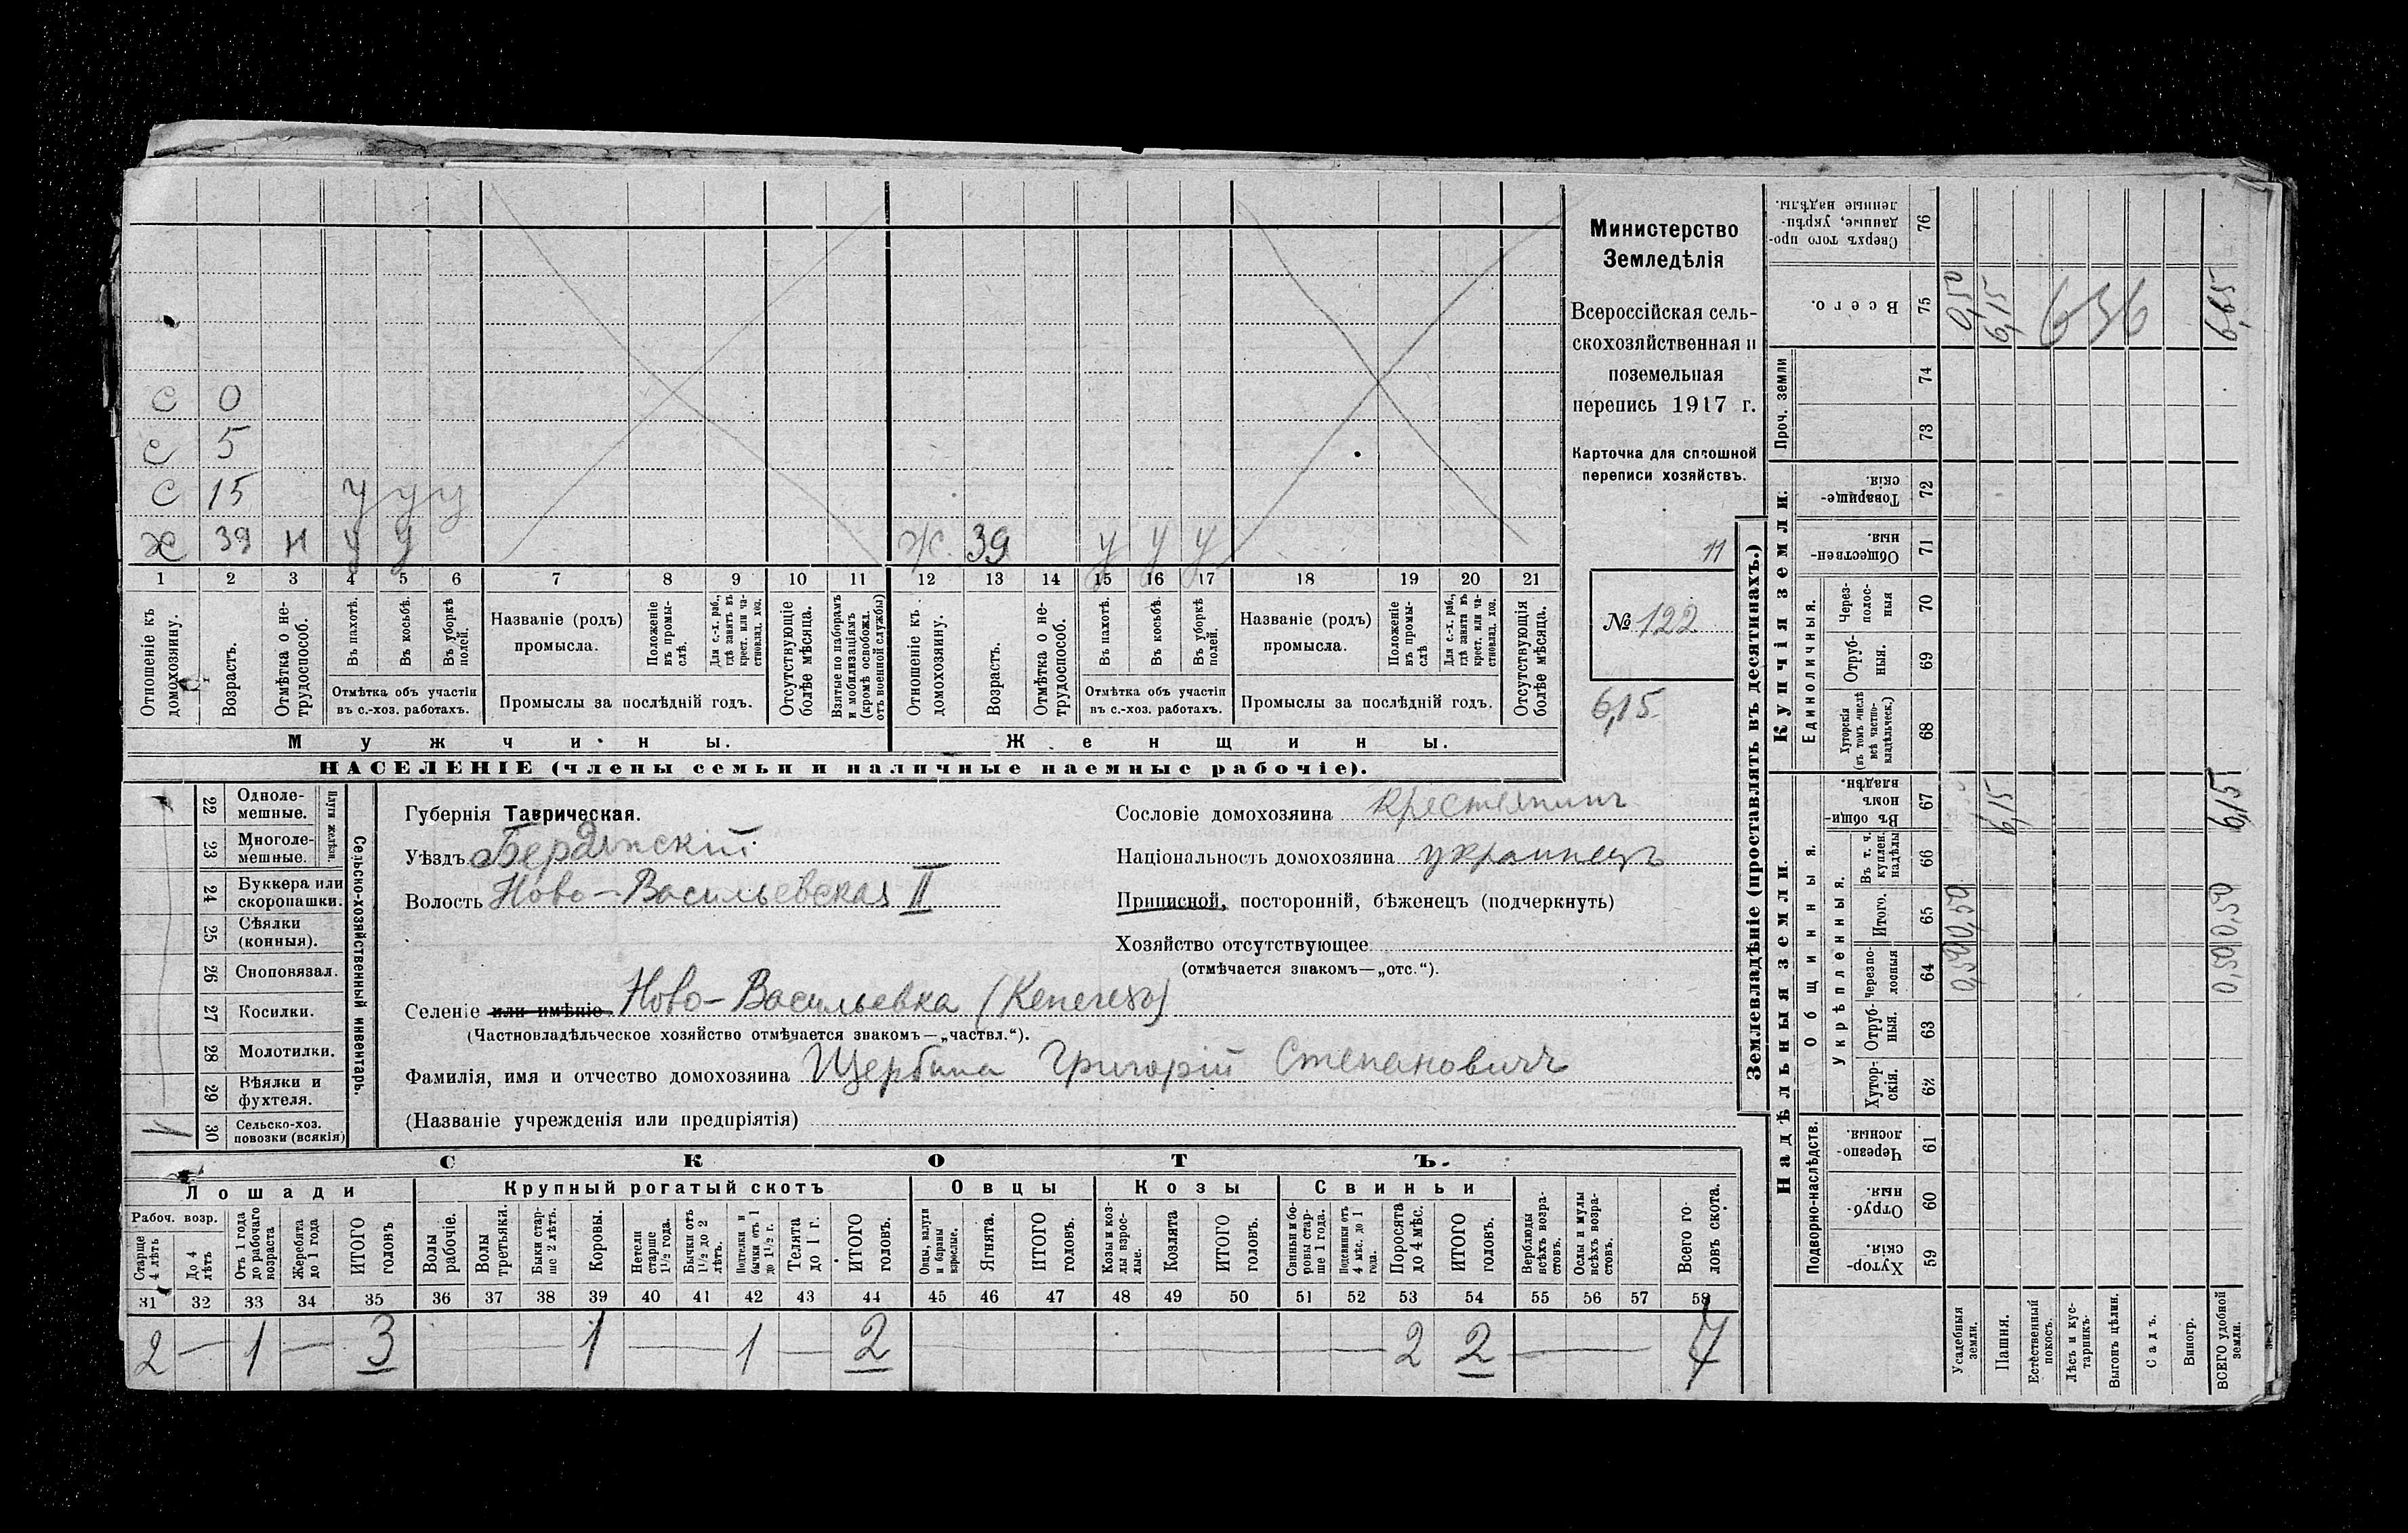 с 0
с 5
с 15 у у у
х 39 н у у ж. 39 у у у
1 2 3 4 5 6 7 8 9 10 11 12 13 14 15 16 17 18 19 20 21
Отношеніе къ домохозяину.
Возрастъ.
Отмѣтка о не-трудоспособ.
Въ пахотѣ.
Въ косьбѣ.
Въ уборкѣ полей.
Отмѣтка объ участіи
въ с.-хоз. работахъ.
Названіе (родъ)
промысла.
Положеніе въ промы-слѣ.
Для с.-х. раб., гдѣ занятъ въ крест. или ча-стновлад. хоз.
Промыслы за послѣдній годъ.
Отсутствующіе болѣе мѣсяца.
Взятые по наборамъ и мобилизаціямъ (кромѣ освобожд. отъ военной службы)
Отношеніе къ домохозяину.
Возрастъ.
Отмѣтка о не-трудоспособ.
Въ пахотѣ.
Въ косьбѣ.
Въ уборкѣ полей.
Отмѣтка объ участіи
въ с.-хоз. работахъ.
Названіе (родъ)
промысла.
Положеніе въ промы-слѣ.
Для с.-х. раб., гдѣ занята въ крест. или ча-стновлад. хоз.
Промыслы за послѣдній годъ.
Отсутствующія болѣе мѣсяца.
Мужчины.
Женщины.
НАСЕЛЕНІЕ (члены семьи и наличные наемные рабочіе).
Министерство
Земледѣлія
Всероссійская сель-
скохозяйственная и
поземельная
перепись 1917 г.
Карточка для сплошной
переписи хозяйствъ.
11
№ 122
6,15
Сельско-хозяйственный инвентарь.
Плуги желѣзн.
22 Одноле-мешные.
23 Многоле-мешные.
24 Буккера или скоропашки.
25 Сѣялки (конныя).
26 Сноповязал.
27 Косилки.
28 Молотилки.
29 Вѣялки и фухтеля.
30 Сельско-хоз. повозки (всякія)
Губернія Таврическая.
Уѣздъ Бердянскій
Волость Ново-Васильевская II
Селеніе или имѣніе Ново-Васильевка
(Частновладѣльческое хозяйство отмѣчается знакомъ—„частвл.“).
Фамилія, имя и отчество домохозяина Щербина Григорій Степановичъ
(Названіе учрежденія или предпріятія)
Сословіе домохозяина крестьянинъ
Національность домохозяина украинецъ
Приписной, посторонній, бѣженецъ (подчеркнуть)
Хозяйство отсутствующее
(отмѣчается знакомъ—„отс.“).
СКОТЪ.
Лошади
Рабоч. возр.
Старше 4 лѣтъ
До 4 лѣтъ
Отъ 1 года до рабочаго возраста
Жеребята до 1 года
ИТОГО головъ
Крупный рогатый скотъ
Волы рабочіе.
Волы третьяки.
Быки стар-ше 2 лѣтъ.
Коровы.
Нетели старше 1½ года.
Бычки отъ 1½ до 2 лѣтъ.
Подтелки и бычки отъ 1 до 1½ г.
Телята до 1 г.
ИТОГО головъ.
Овцы
Овцы, валухи и бараны взрослые.
Ягнята.
ИТОГО головъ.
Козы
Козы и коз-лы взрос-лые.
Козлята
ИТОГО головъ.
Свиньи
Свиньи и бо-ровы стар-ше 1 года.
Подсвинки отъ 4 мѣс. до 1 года.
Поросята до 4 мѣс.
ИТОГО головъ.
Верблюды всѣхъ возра-стовъ.
Ослы и мулы всѣхъ возра-стовъ.
Всего го-ловъ скота.
31 32 33 34 35 36 37 38 39 40 41 42 43 44 45 46 47 48 49 50 51 52 53 54 55 56 57 58
2 — 1 — 3 — 1 — 1 — 2 — 2 2 — 7
Землевладѣніе (проставлять въ десятинахъ.)
Купчія земли.
Сверхъ того про-данные, укрѣп-ленные надѣлы. 76
Всего. 75 0,50 6,15 6,65
Проч. земли
74
73
Товарище-скія. 72
Обществен-ныя. 71
Единоличныя.
Через-полос-ныя 70
Отруб-ныя. 69
Хуторскія (въ томъ числѣ всѣ частно-владѣльческ.) 68
Надѣльныя земли.
Общинныя.
Въ общин-номъ владѣн. 67 6,15 6,15
Укрѣпленныя.
Въ т. ч. куплен. надѣлы 66
Итого. 65 0,50 0,50
Черезпо-лосныя 64 0,50 0,50
Отруб-ныя. 63
Хутор-скія. 62
Подворно-наслѣдств.
Черезпо-лосныя. 61
Отруб-ныя. 60
Хутор-скія. 59
Усадебныя земли.
Пашня.
Естественный покосъ.
Лѣсъ и кус-тарникъ.
Выгонъ цѣлин.
Садъ.
Виногр.
ВСЕГО удобной земли.